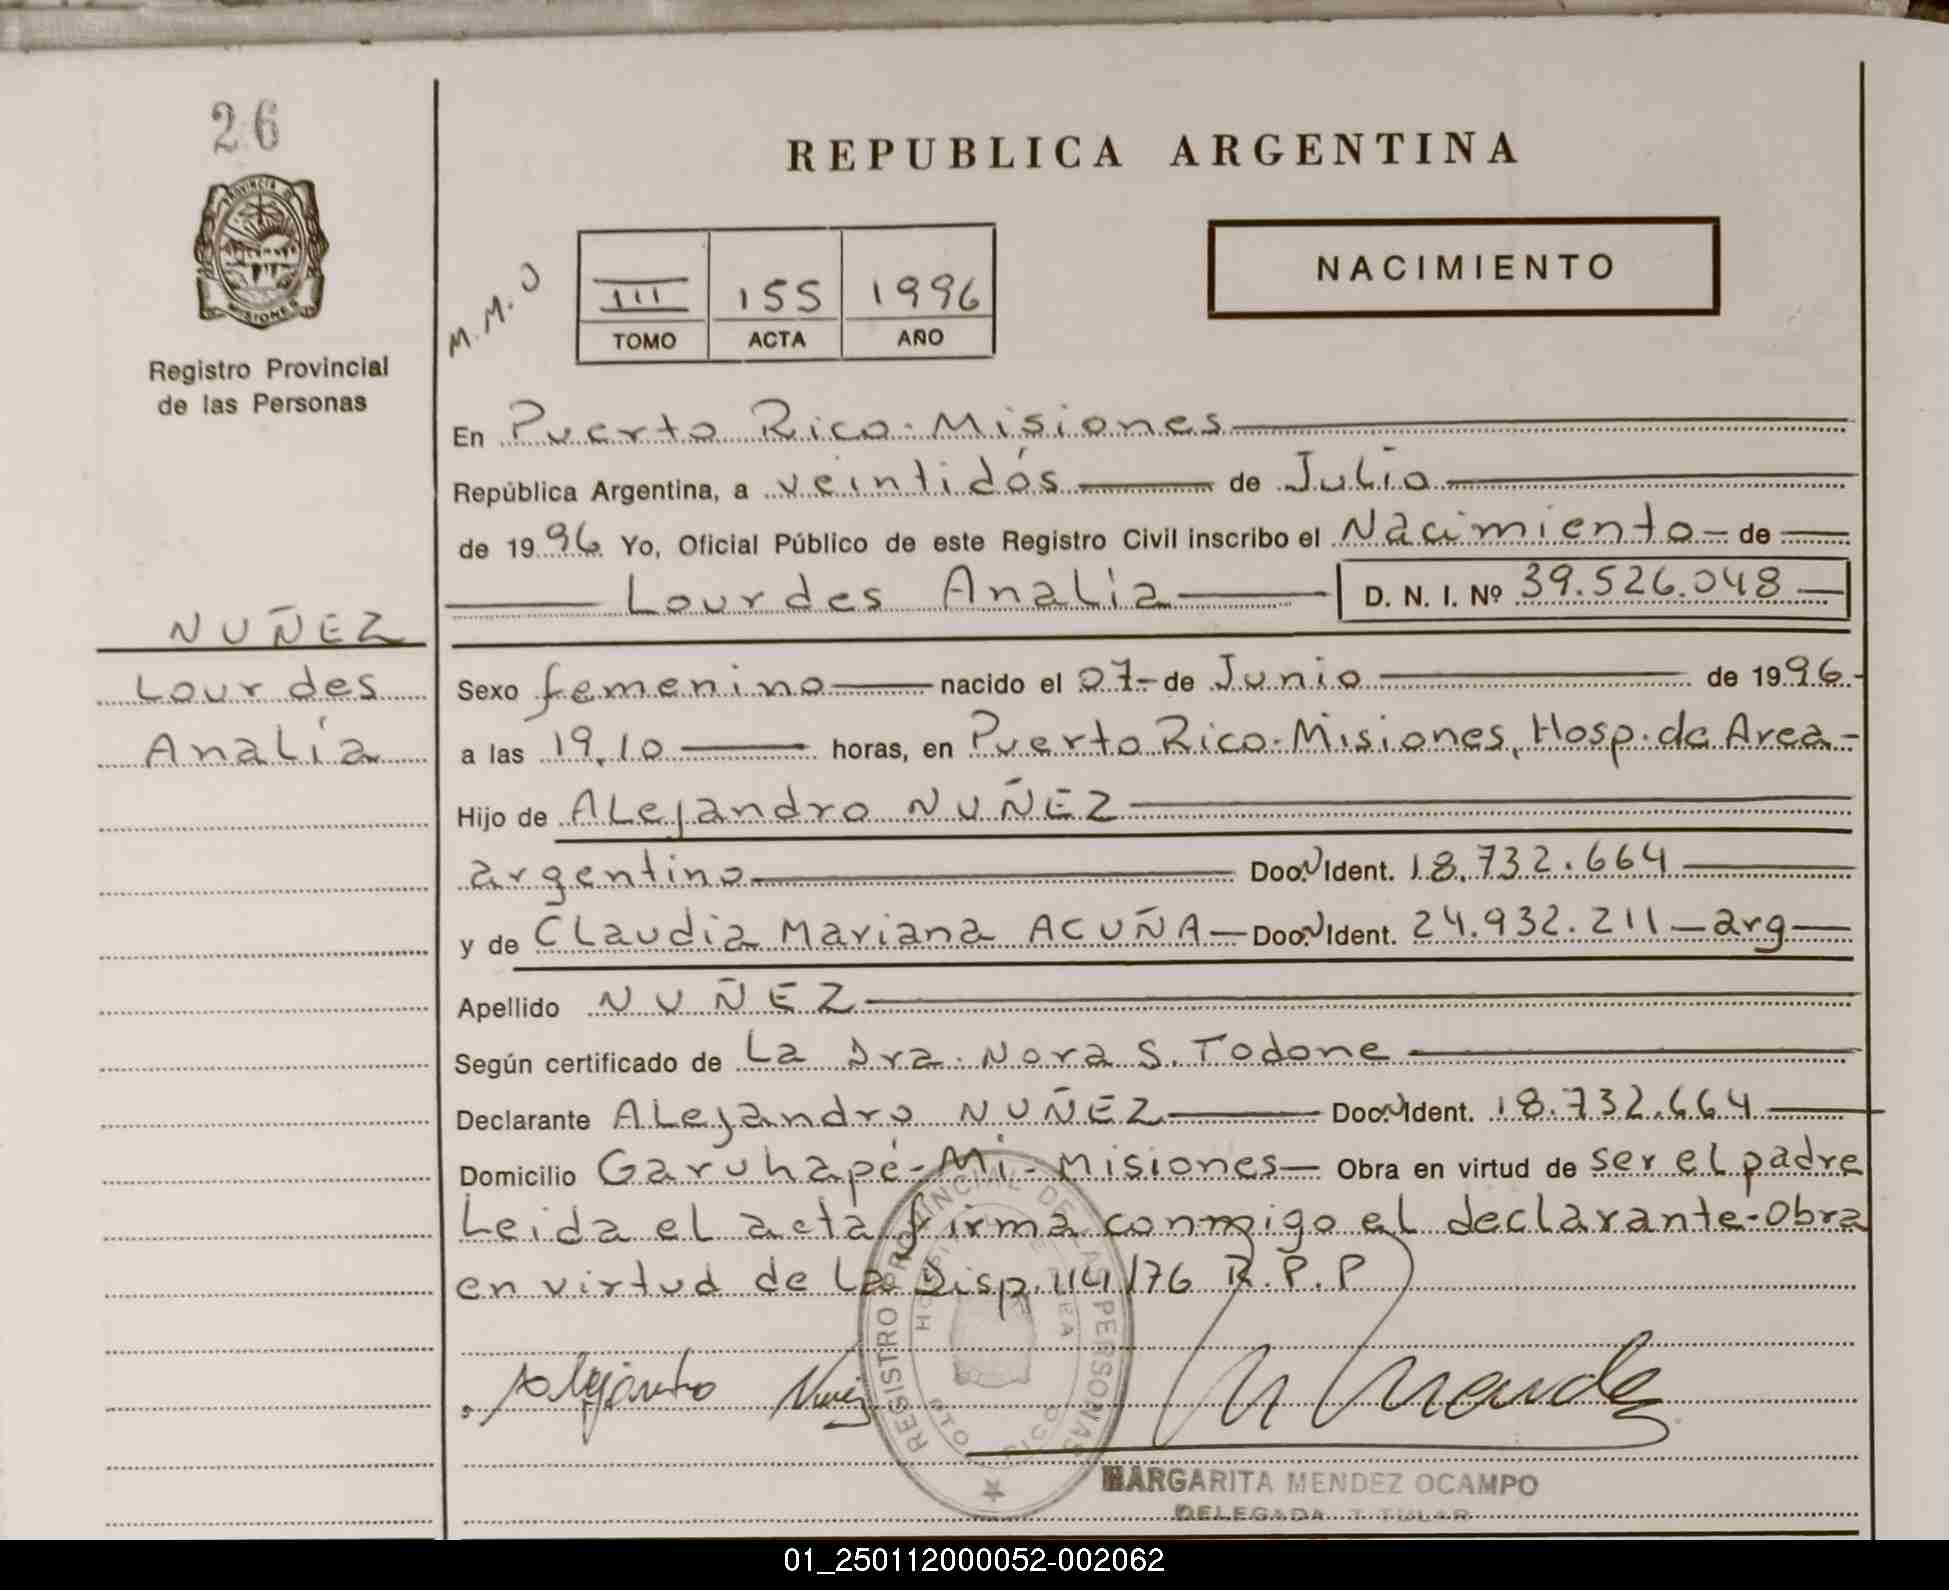 26
PROVINCIA D
MISIONES
Registro Provincial
de las Personas
NUÑEZ
Lourdes
Analía
REPUBLICA ARGENTINA
M.M.O
III 155 1996
TOMO ACTA AÑO
NACIMIENTO
En Puerto Rico. Misiones
República Argentina, a veintidós de Julio
de 1996 Yo, Oficial Público de este Registro Civil inscribo el Nacimiento de
Lourdes Analía D. N. I. Nº 39.526.048
Sexo femenino nacido el 07 de Junio de 1996.
a las 19.10 horas, en Puerto Rico. Misiones, Hosp. de Area
Hijo de Alejandro NUÑEZ
argentino Doc. N Ident. 18.732.664
y de Claudia Mariana ACUÑA Doc. N Ident. 24.932.211 arg
Apellido NUÑEZ
Según certificado de La Dra. Nora S. Todone
Declarante Alejandro NUÑEZ Doc. N Ident. 18.732.664
Domicilio Garuhapé-Mi-Misiones Obra en virtud de ser el padre
Leida el acta firma conmigo el declarante-Obra
en virtud de la Disp. 114/76 R.P.P
Alejandro Nuñez
REGISTRO PROVINCIAL DE LAS PERSONAS
MARGARITA MENDEZ OCAMPO
DELEGADA TITULAR
01_250112000052-002062